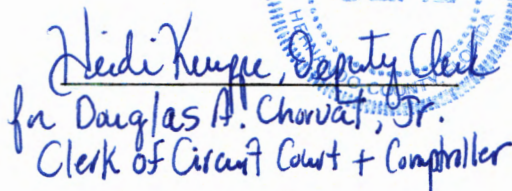 Heidi Kurppe, Deputy Clerk
for Douglas A. Chorvat, Jr.
Clerk of Circuit Court + Comptroller